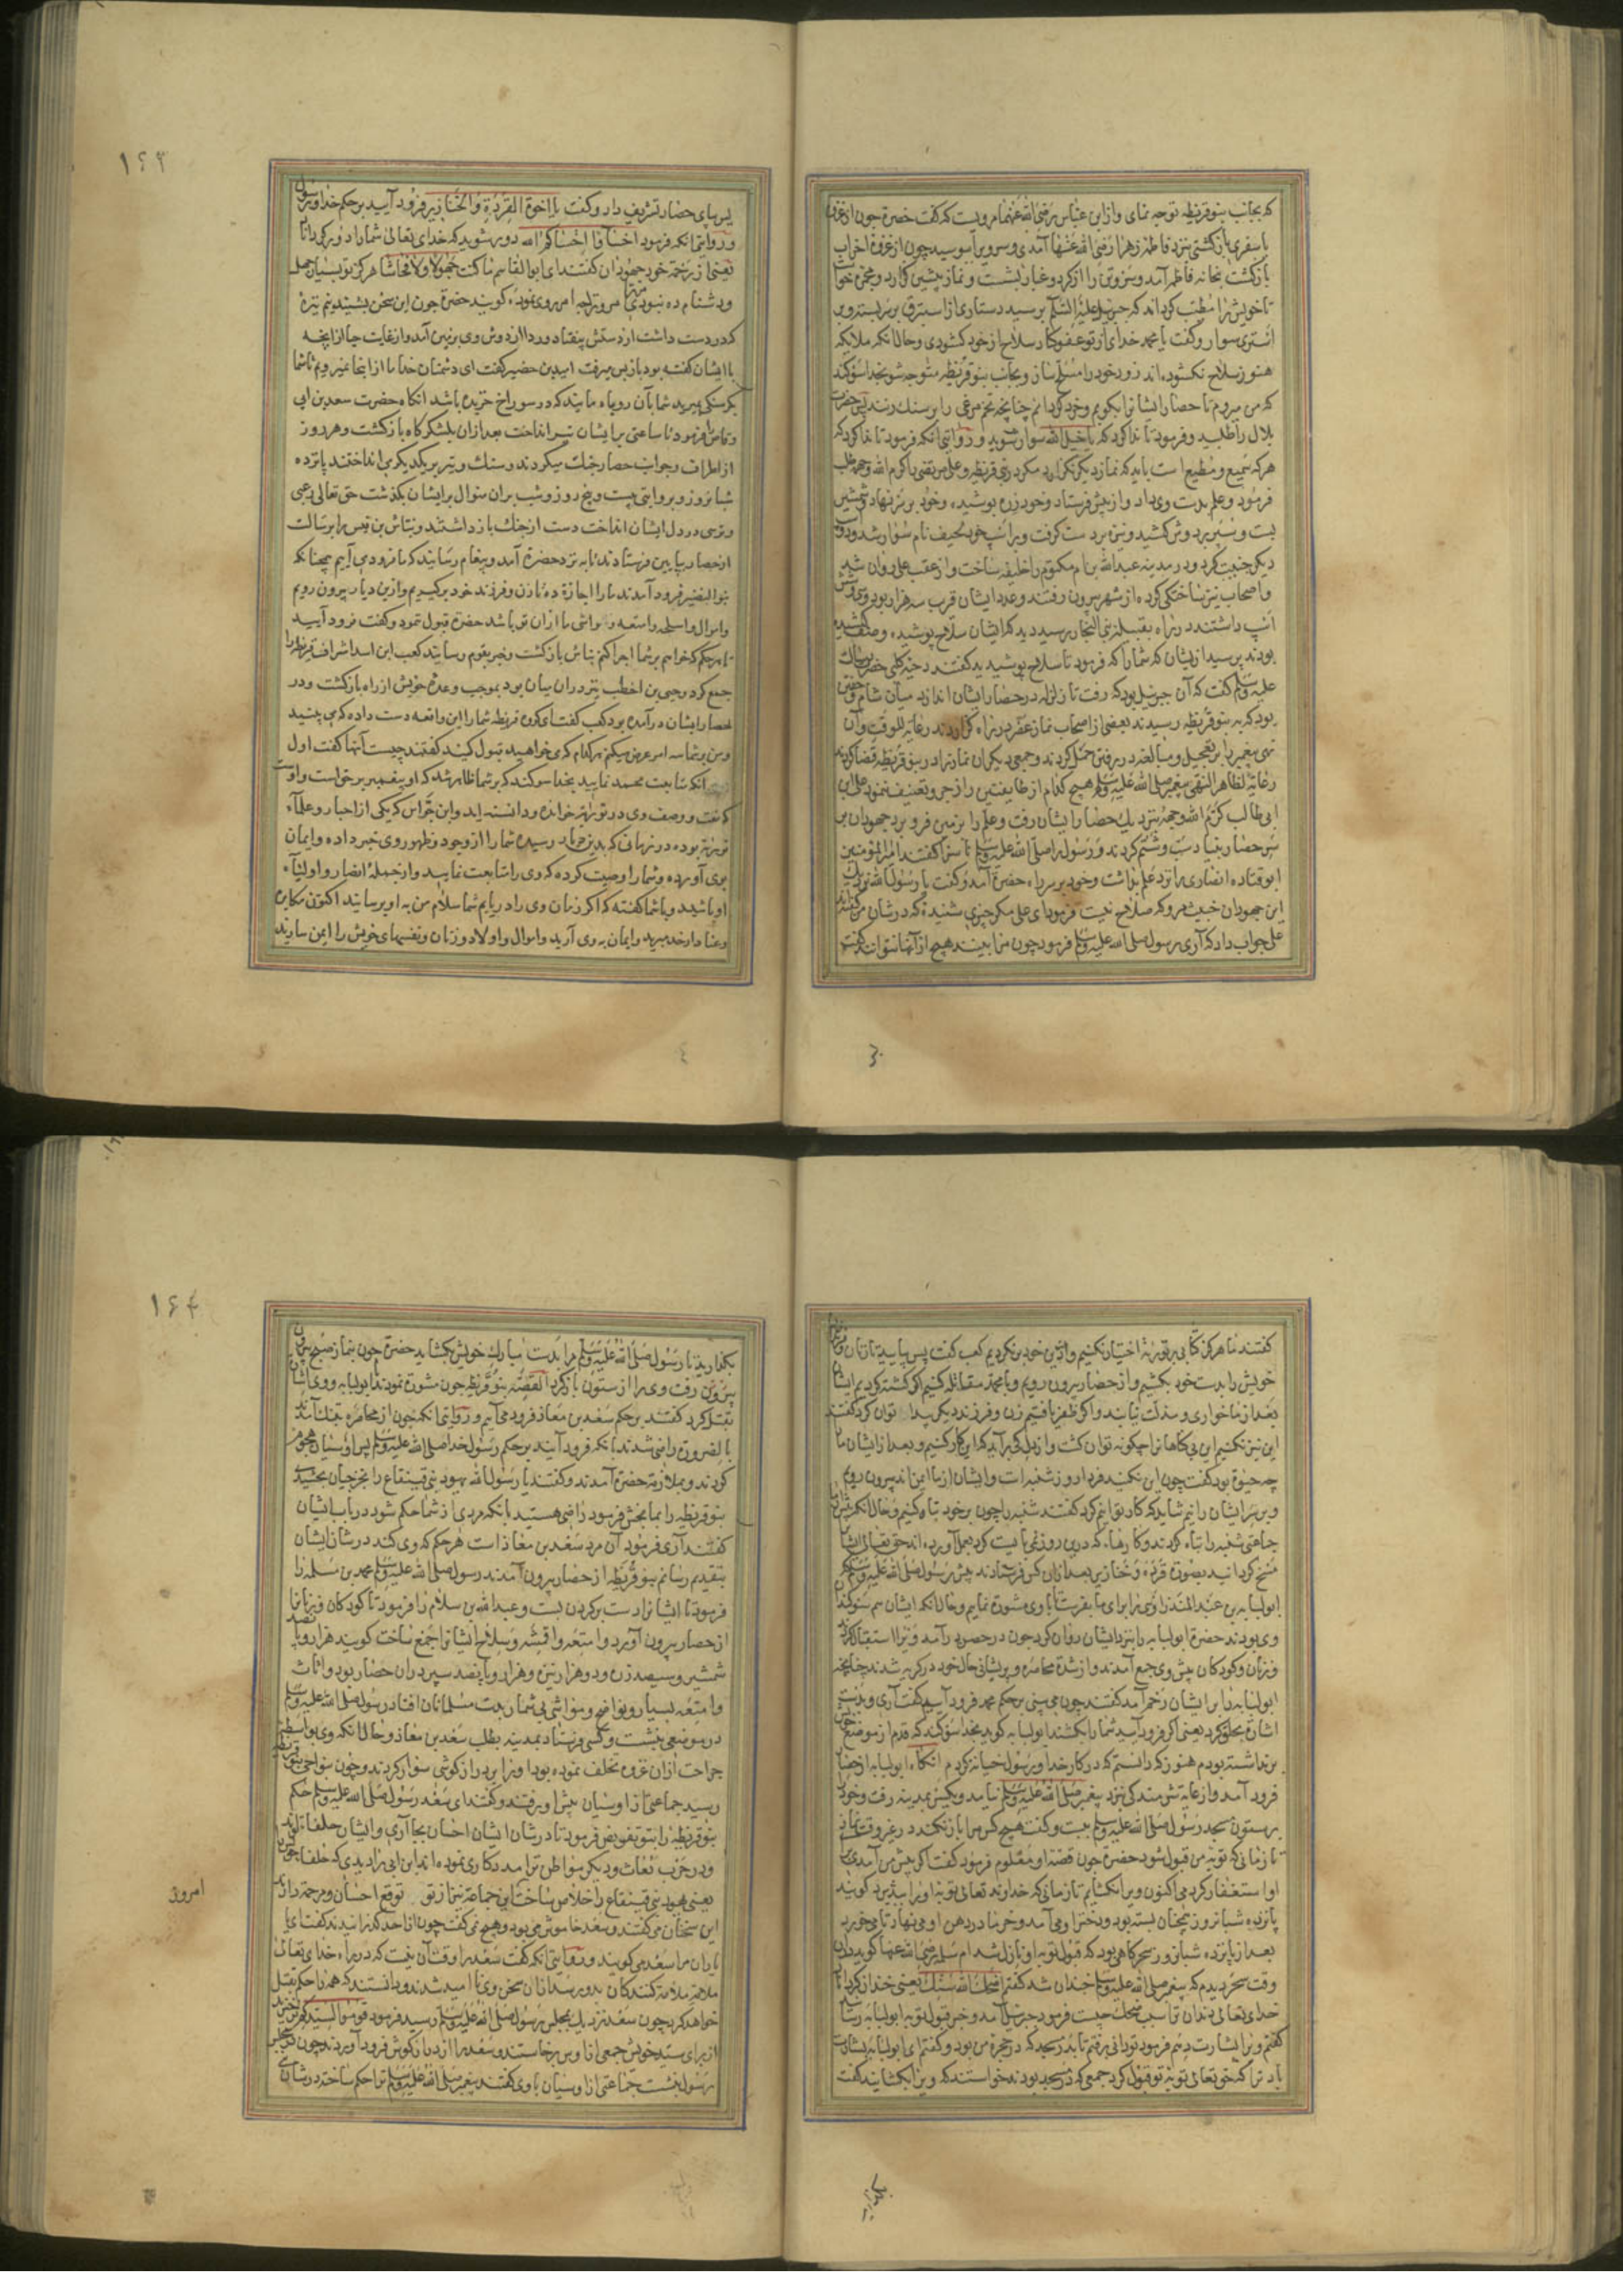 که بجانب بنو قریظه توجه نمای و از ابن عباس رضی الله عنهما مرویست که گفت حضرة چون از غزو
یا سفری بازگشتی نزد فاطمه زهرا رضی الله عنها آمدی و سر وی را ببوسید چون از غزوه احزاب
بازگشت بخانه فاطمه آمد و سر و تن را از گرد و غبار بشست و نماز پیشین گزارد و مجمره خواست
تا خویش را مطیب گرداند که جبریل علیه السلم برسید دستاری از استبرق بر سر بسته و بر
استری سوار و گفت یا محمد خدای از تو عفو کناد سلاح از خود گشودی و حال آنکه ملایکه
هنوز سلاح نگشوده اند زود خود را مسلح ساز و بجانب بنو قریظه متوجه شو بخدا سوگند
که من میروم تا حصار ایشانرا بکوبم و خرد گردانم چنانچه تخم مرغی را بر سنک زنند پس حضرت
بلال را طلبید و فرمود تا ندا کرد که یا خیل الله سوار شوید و روایتی آنکه فرمود تا ندا کرد که
هر که سمیع و مطیع است باید که نماز دیگر نگزارد مگر در بنی قریظه و علی مرتضی را کرم الله وجهه طلب
فرمود و علم بدست وی داد و از پیش فرستاد و خود زره پوشیده و خود بر سر نهاد و شمشیر
بست و سپر بر دوش کشید و نیزه بر دست گرفت و بر اسب خود لحیف نام سوار شد و دو
دیگر جنیبت کرد و در مدینه عبدالله بن ام مکتوم را خلیفه ساخت و از عقب علی روان شد
و اصحاب نیز ساختگی کرده از شهر بیرون رفتند و عدد ایشان قرب سه هزار بود و سی و شش
اسب داشتند در راه بقبیله بنی النجار رسید دید که ایشان سلاح پوشیده و صف کشیده
بودند پرسید از یشان که شما را که فرمود تا سلاح پوشیدید گفتند دحیه کلبی حضرت رسالت
علیه وسلم گفت که آن جبریل بود که رفت تا زلزله در حصار ایشان اندازد میان شام و خفتن
بود که به بنو قریظه رسیدند بعضی از اصحاب نماز عصر در راه گزاردند رعایة للوقت و آن
نهی پیغمبر را بر تعجیل و مبالغه در رفتن حمل کردند و جمعی دیگران نماز را در بنو قریظه قضا کردند
رعایة لظاهر النهی پیغمبر صلی الله علیه وسلم هیچ کدام از طایفتین را زجر و تعنیف ننمود علی بن
ابی طالب کرم الله وجهه نزدیک حصار ایشان رفت و علم را بزمین فرو برد جهودان بر
سر حصار بنیاد سب و شتم کردند و رسول را صلی الله علیه وسلم ناسزا گفتند امیر المؤمنین
ابو قتاده انصاری را نزد علم بداشت و خود بر سر راه حضرة آمد و گفت یا رسول الله نزدیک
این جهودان خبیث مرو که صلاح نیست فرمود ای علی مگر چیزی شنیدۀ که در شان من گفتند
علی جواب داد که آری رسول صلی الله علیه وسلم فرمود چون مرا بینند هیچ از آنها نتوانند گفت
۱۶۳
پس بپای حصار تشریف داد و گفت یا اخوة القردة والخنازیر فرود آیید بر حکم خدا و رسول
و روایتی آنکه فرمود اخسأوا اخسأکم الله دور شوید که خدای تعالی شما را دور گرداناد
یعنی از رحمة خود جهودان گفتند ای ابو القاسم ما کنت جهولا ولا فحاشا هرگز تو بسیار جهل
و دشنام ده نبودی مر و ترا چه امر روی نموده گویند حضرة چون این سخن بشنید نیم نیزۀ
که در دست داشت از دستش بیفتاد و ردا از دوش وی بزمین آمد و از غایت حیا از آنچه
با ایشان گفته بود باز پس میرفت اسید بن حضیر گفت ای دشمنان خدا ما از اینجا نمیرویم تا شما
بگرسنگی بمیرید شما بآن روباه مانید که در سوراخ خزیده باشد آنگاه حضرت سعد بن ابی
وقاص را فرمود تا ساعتی بر ایشان تیر انداخت بعد از آن بلشکرگاه بازگشت و هر روز
از اطراف و جوانب حصار جنک میکردند و سنک و تیر بر یکدیگر می انداختند پانزده
شبانروز و بروایتی بیست و پنج روز و شب بر آن منوال بر ایشان بگذشت حق تعالی رعبی
و ترسی در دل ایشان انداخت دست از جنک باز داشتند و نباش بن قیس را برسالت
از حصار بپایین فرستادند تا به نزد حضرة آمد و پیغام رسانید که ما فرود می آییم همچنانکه
بنو النضیر فرود آمدند ما را اجازة ده تا زن و فرزند خود برگیریم و ازین دیار بیرون رویم
و اموال و اسلحه و امتعه و مواشی ما از آن تو باشد حضرة قبول ننمود و گفت فرود آیید
تا هر حکم که خواهم بر شما اجرا کنم نباش بازگشت و خبر بقوم رسانید کعب ابن اسد اشراف قریظه را
جمع کرد و حیی بن اخطب نیز در آن میان بود بموجب وعدۀ خویش از راه بازگشت و در
حصار ایشان درآمده بود کعب گفت ای گروه قریظه شما را این واقعه دست داده که می بینید
و من بر شما سه امر عرض میکنم هر کدام که می خواهید قبول کنید گفتند چیست آنها گفت اول
آنکه متابعت محمد نمایید بخدا سوگند که بر شما ظاهر شد که او پیغمبر بر حق است و اوست
که نعت و وصف وی در توراة خوانده و دانسته اید و ابن جواس که یکی از احبار و علماء
توریة بوده در زمانی که بدین دیار رسیده شما را از وجود و ظهور وی خبر داده و ایمان
بوی آورده و شما را وصیت کرده که وی را متابعت نمایید و از جملۀ انصار و اولیاء
او باشید و با شما گفته که اگر زمان وی را دریابیم شما سلام من به او برسانید اکنون مکابره
و عناد از حد مبرید و ایمان به وی آرید و اموال و اولاد و زنان و نفسهای خویش را ایمن سازید
گفتند ما هرگز کتابی بر توریة اختیار نکنیم و از دین خود برنگردیم کعب گفت پس بیایید تا زنان و فرزندان
خویش را بدست خود بکشیم و از حصار بیرون رویم و با محمد مقاتله کنیم اگر کشته گردیم ایشان
بعد از ما خواری و مذلت نیابند و اگر ظفر یافتیم زن و فرزند دیگر پیدا توان کرد گفتند
این نیز نکنیم این بی گناهانرا چگونه توان کشت و از دل کی برآید که این کار کنیم و بعد از ایشان ما را
چه حیوة بود گفت چون این نکنید فردا روز شنبه است و ایشان از ما ایمن اند بیرون رویم
و بر سر ایشان رانیم شاید که کار توانیم کرد گفتند شنبه را چون بر خود تباه کنیم و حال آنکه پیش از ما
جماعتی شنبه را تباه کردند و کارها که درین روز نمی بایست کرد بعمل آورده اند حق تعالی ایشانرا
مسخ گردانید بصورة قرده و خنازیر بعد از آن کس فرستادند پیش رسول صلی الله علیه وسلم که
ابو لبابه بن عبد المنذر اوسی را برای ما بفرست تا با وی مشورة نماییم و حال آنکه ایشان هم سوگندان
وی بودند حضرة ابو لبابه را بنزد ایشان روان کرد چون در حصن درآمد ویرا استقبال کردند
و زنان و کودکان پیش وی جمع آمدند و از شدة محاصره و پریشانی حال خود در گریه شدند چنانچه
ابو لبابه را بر ایشان رحم آمد گفتند چون می بینی بر حکم محمد فرود آییم گفت آری و بدست
اشارة بحلق کرد یعنی اگر فرود آیید شما را بکشند ابو لبابه گوید بخدا سوگند که قدم از موضع خویش
برنداشته بودم هنوز که دانستم که در کار خدا و رسول خیانه کردم آنگاه ابو لبابه از حصار
فرود آمد و از غایة شرمندگی بنزد پیغمبر صلی الله علیه وسلم نیامد و یکسر بمدینه رفت و خود را
بر ستون مسجد رسول صلی الله علیه وسلم ببست و گفت هیچ کس مرا باز نکند در غیر وقت نماز
تا زمانی که توبه من قبول شود حضرة چون قصه او معلوم فرمود گفت اگر پیش من آمدی برای
او استغفار کردمی اکنون ویرا نگشایم تا زمانی که خداوند تعالی توبه او را بپذیرد گویند
پانزده شبانروز همچنان بسته بود و دختر او می آمد و خرما در دهن او می نهاد تا می خورد
بعد از پانزده شبانروز سحرگاهی بود که قبول توبه او نازل شد ام سلمه رضی الله عنها گوید در آن
وقت سحر دیدم که پیغمبر صلی الله علیه وسلم خندان شد گفتم اضحک الله سنک یعنی خندان گرداناد
خدای تعالی دندان ترا سبب ضحک چیست فرمود جبریل آمد و خبر قبول توبه ابو لبابه رسانید
گفتم ویرا بشارت دهم فرمود تو دانی برفتم تا بدر مسجد که در حجرۀ من بود و گفتم ای ابو لبابه بشارت
باد ترا که حق تعالی توبه تو قبول کرد جمعی که در مسجد بودند خواستند که ویرا بگشایند گفت
۱۶۴
بگذارید تا رسول صلی الله علیه وسلم مرا بدست مبارک خویش بگشاید حضرة چون بنماز صبح بیرون
بیرون رفت وی را از ستون باز کرد القصه بنو قریظه چون مشورة نمودند با ابو لبابه و وی اشارة
بقتل کرد گفتند بر حکم سعد بن معاذ فرود می آییم و روایتی آنکه چون از محاصره بتنک آمدند
بالضرورة راضی شدند بآنکه فرود آیند بر حکم رسول خدا صلی الله علیه وسلم پس اوسیان هجوم
کردند و بملازمة حضرة آمدند و گفتند یا رسول الله یهود بنی قینقاع را بخزرجیان بخشیدی
بنو قریظه را بما بخش فرمود راضی هستید بآنکه مردی از شما حکم شود در باب ایشان
گفتند آری فرمود آن مرد سعد بن معاذ است هر حکم که وی کند در شان ایشان
بتقدیم رسانم بنو قریظه از حصار بیرون آمدند رسول صلی الله علیه وسلم محمد بن مسلمه را
فرمود تا ایشانرا دست بر گردن بست و عبد الله بن سلام را فرمود تا کودکان و زنانرا
از حصار بیرون آورد و امتعه و اقمشه و سلاح ایشانرا جمع ساخت گویند هزار و پانصد
شمشیر و سیصد زره و دو هزار نیزه و هزار و پانصد سپر در آن حصار بود و اثاث
و امتعه بسیار و نواضح و مواشی بی شمار بدست مسلمانان افتاد رسول صلی الله علیه وسلم
در موضعی بنشست و کسی فرستاد بمدینه بطلب سعد بن معاذ و حال آنکه وی بواسطه
جراحت از آن غزوه تخلف نموده بود او را بر درازگوشی سوار کردند و چون بنواحی بنو قریظه
رسید جماعتی از اوسیان پیش او رفتند و گفتند ای سعد رسول صلی الله علیه وسلم حکم
بنو قریظه را بتو تفویض فرمود تا در شان ایشان احسان بجا آری و ایشان حلفاء تواند
و در حرب بعاث و دیگر مواطن ترا مددکاری نموده اند ابن ابی را دیدی که حلفاء خود
یعنی یهود بنی قینقاع را خلاص ساخت این جماعة نیز از تو توقع احسان و مرحمة دارند
این سخنان می گفتند و سعد خاموش می بود و هیچ نمی گفت چون از حد گذرانیدند گفت ای
یاران مرا سعد می گویند و روایتی آنکه گفت سعد را وقت آن نیست که در راه خدای تعالی
ملامة ملامة کنندگان بدو رسد از آن سخن وی نا امید شدند و دانستند که همه را حکم بقتل
خواهد کرد چون سعد نزدیک بمجلس رسول صلی الله علیه وسلم رسید فرمود قوموا لسیدکم برخیزید
از برای سید خویش جمعی از اوس برخاستند و سعد را از درازگوش فرود آوردند چون در مجلس
رسول بنشست جماعتی از اوسیان با وی گفتند پیغمبر صلی الله علیه وسلم ترا حکم ساخته در شان
امروز